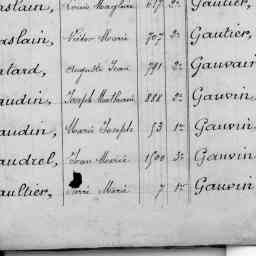 aslain, Louis 617 2e Gautier,
aslain, Victor Marie 707 2e Gautier,
atard, Auguste Jean 791 2e Gauvain
audin, Joseph Mathurin 888 2e Gauvin
audin, Marie Joseph 53 1e Gauvin,
audrel, Jean Marie 1500 3e Gauvin
aultier, Pierre Marie 7 1e Gauvin